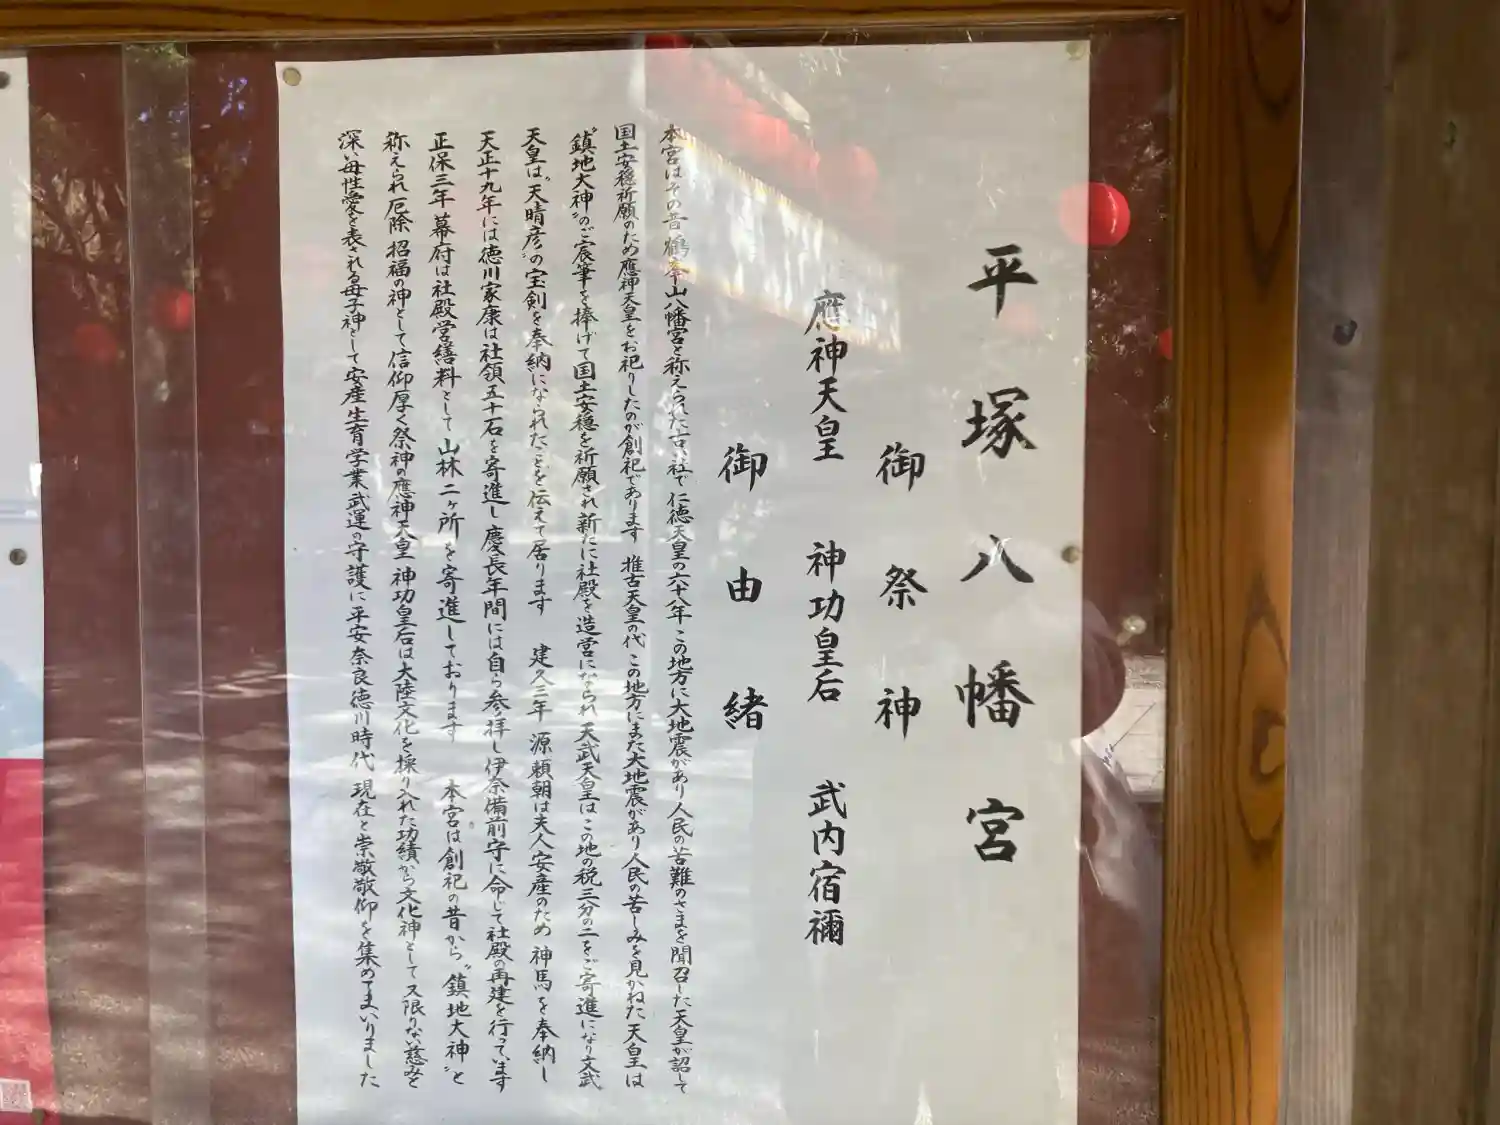 平塚八幡宮
御祭神
應神天皇 神功皇后 武内宿禰
御由緒
本宮はその昔鶴峯山八幡宮と称えられた古い社で仁徳天皇の六十八年 この地方に大地震があり人民の苦難のさまを聞召した天皇が詔して
国土安穏祈願のため應神天皇をお祀りしたのが創祀であります 推古天皇の代 この地方にまた大地震があり人民の苦しみを見かねた天皇は
“鎮地大神”のご宸筆を捧げて国土安穏を祈願され新たに社殿を造営になられ 天武天皇はこの地の税三分の二をご寄進になり文武
天皇は“天晴彦”の宝剣を奉納になられたことを伝えて居ります 建久三年 源頼朝は夫人安産のため 神馬を奉納し
天正十九年には徳川家康は社領五十石を寄進し 慶長年間には自ら参拝し伊奈備前守に命じて社殿の再建を行っています
正保三年 幕府は社殿営繕料として 山林二ヶ所を寄進しております 本宮は創祀の昔から“鎮地大神”と
称えられ 厄除 招福の神として信仰厚く祭神の應神天皇 神功皇后は大陸文化を採り入れた功績から文化神として又限りない慈みと
深い母性愛を表される母子神として安産生育学業武運の守護に平安奈良徳川時代 現在と崇敬敬仰を集めてまいりました